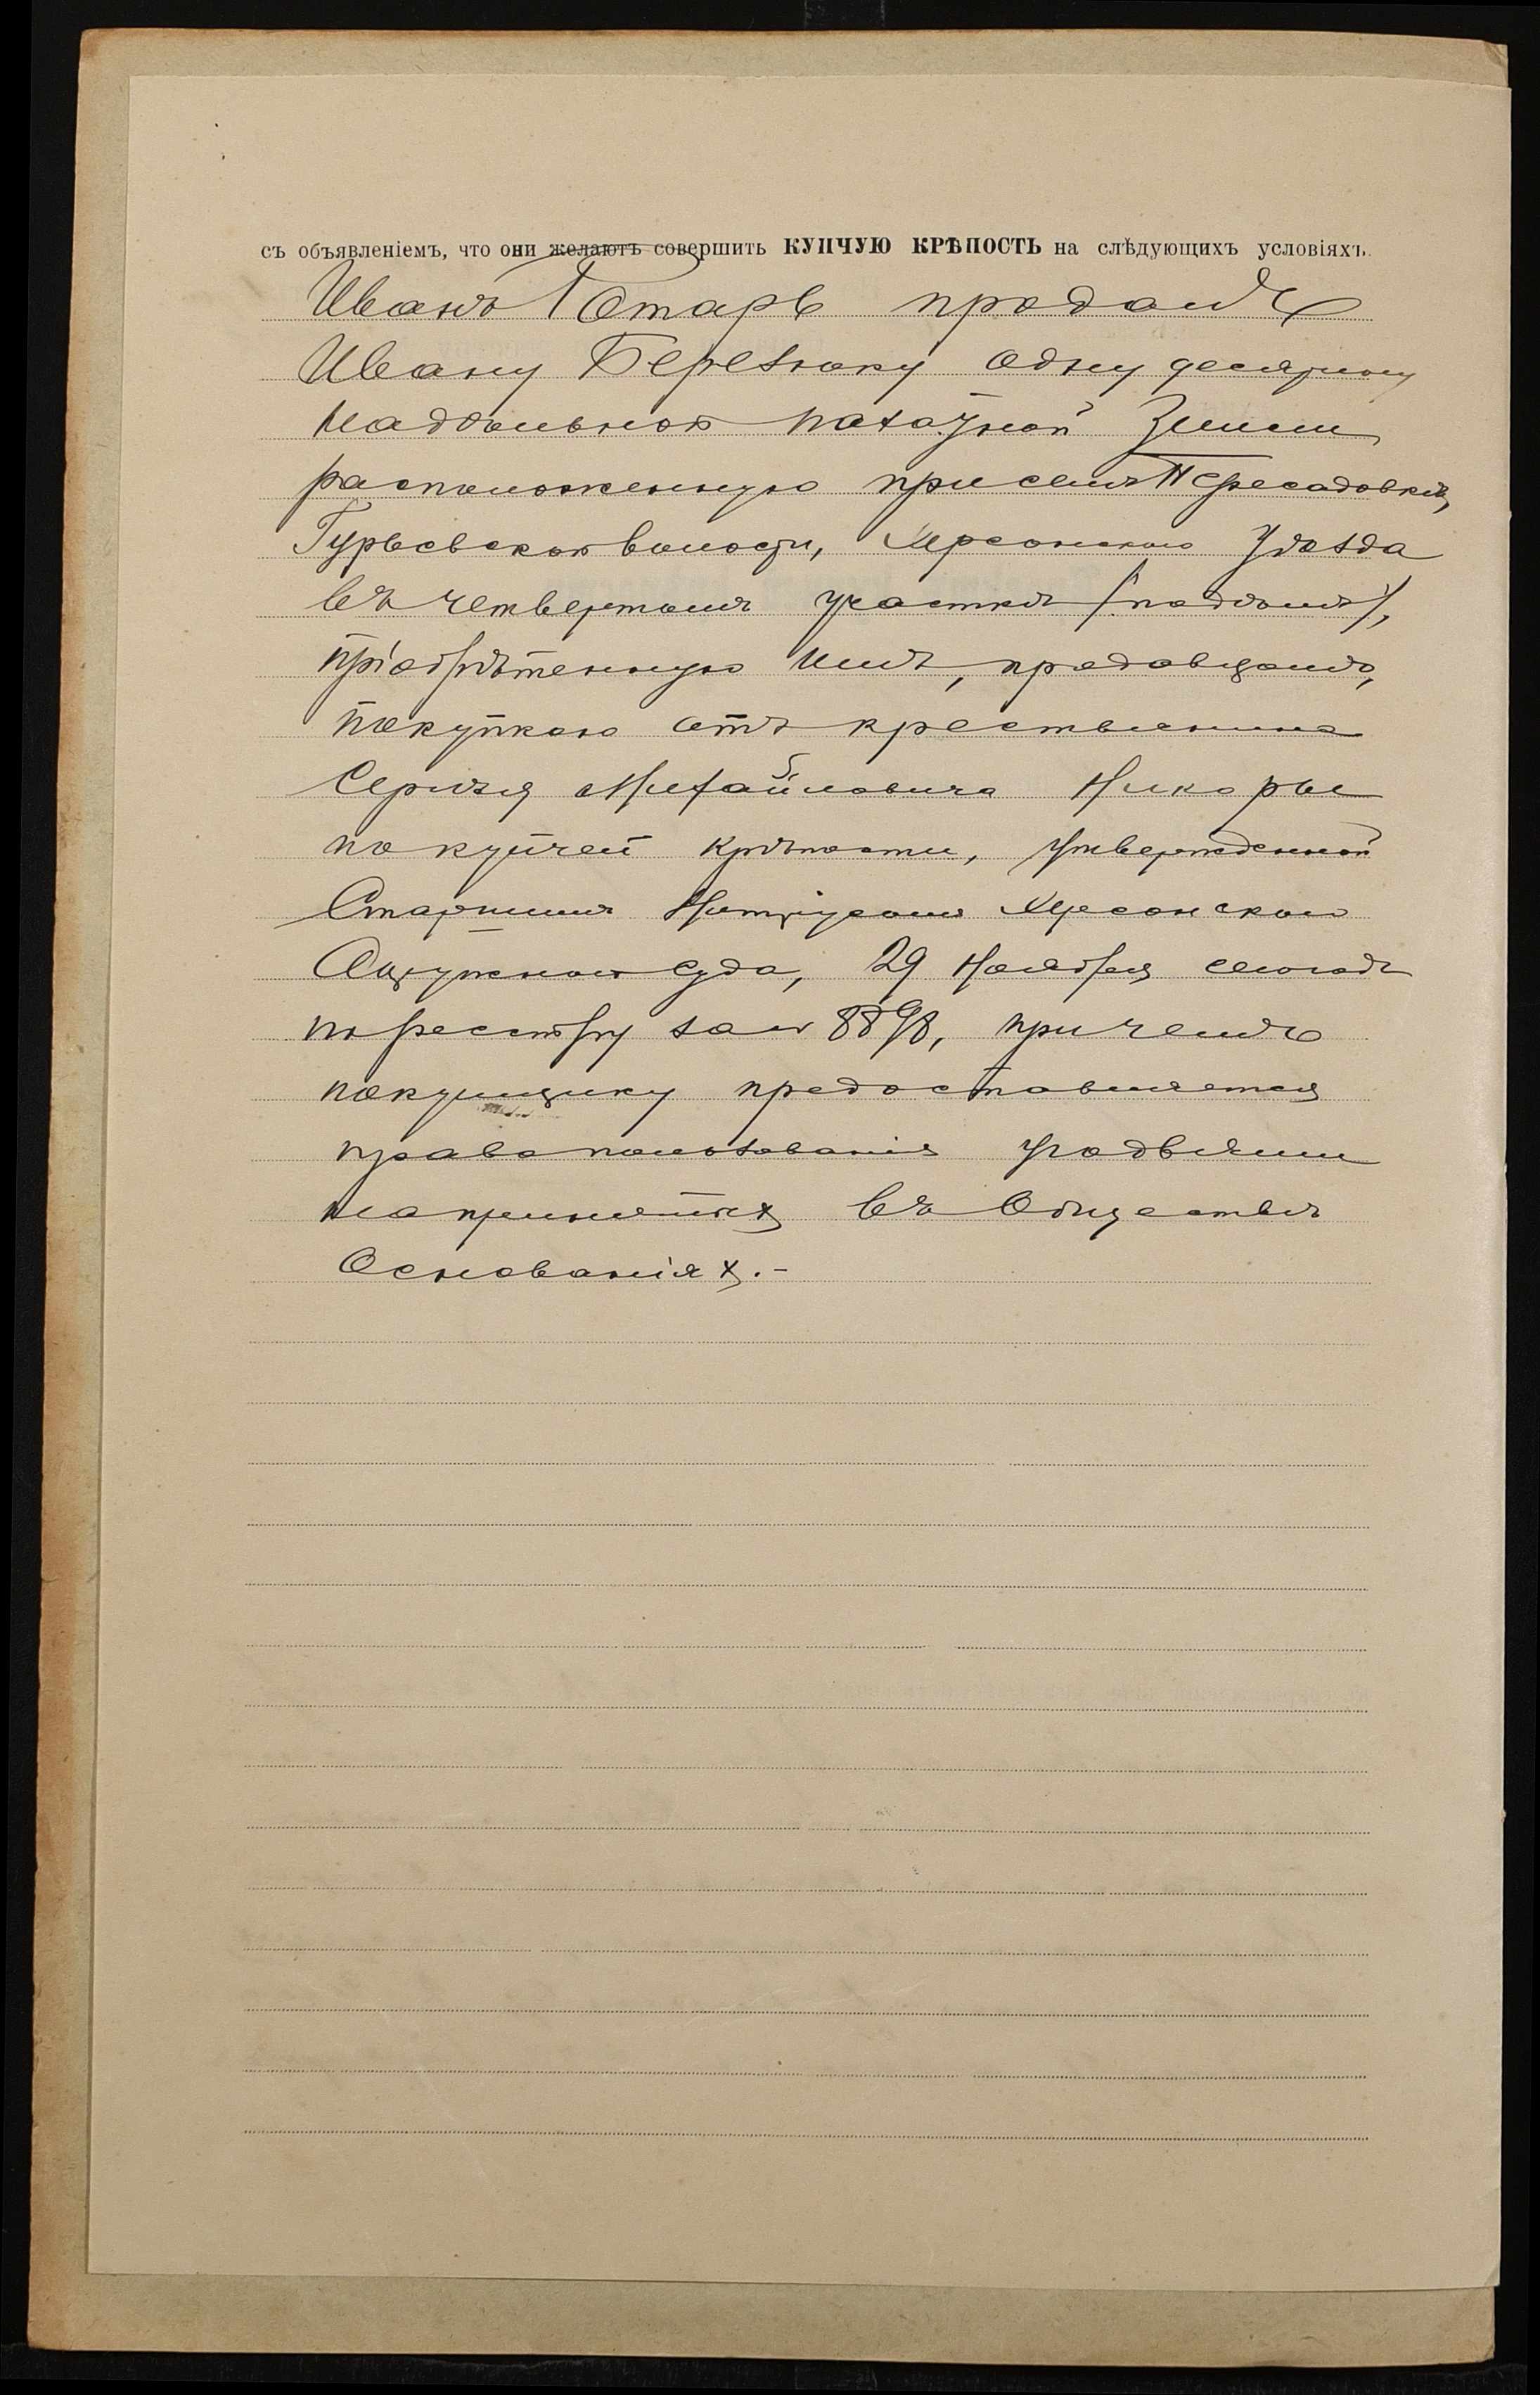 съ объявленіемъ, что они желаютъ совершить КУПЧУЮ КРѢПОСТЬ на слѣдующихъ условіяхъ.
Иванъ Ротарь продалъ
Ивану Березюку одну десятину
надѣльной пахатной земли
расположенную при селѣ Пересадовкѣ,
Гурьевской волости, Херсонскаго Уѣзда
въ четвертомъ участкѣ
пріобрѣтенную имъ, продавцомъ,
покупкою отъ крестьянина
Сергѣя Михайловича Никоры
по купчей крѣпости, утвержденной
Старшимъ Нотаріусомъ Херсонскаго
Окружного Суда, 29 Ноября
по реестру за № 8898, при чемъ
покупщику предоставляется
право пользованія угодьями
на принятых въ Обществѣ
Основаніях.-